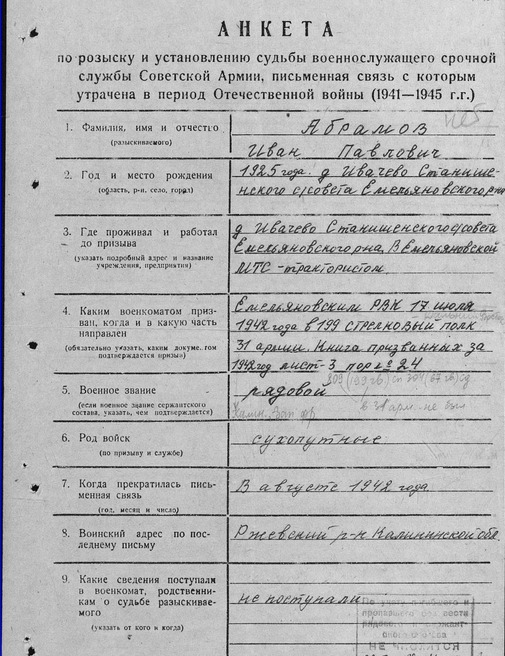 АНКЕТА
по розыску и установлению судьбы военнослужащего срочной
службы Советской Армии, письменная связь с которым
утрачена в период Отечественной войны (1941—1945 г.г.)
1. Фамилия, имя и отчество
(разыскиваемого)
Абрамов
Иван Павлович
2. Год и место рождения
(область, р-н, село, город)
1925 года. д Ивачево Станише-
нского с/совета Емельяновского рна
3. Где проживал и работал
до призыва
(указать подробный адрес и название
учреждения, предприятия)
д Ивачево Станишенского с/совета
Емельяновского рна, В Емельяновской
МТС - трактористом
4. Каким военкоматом приз-
ван, когда и в какую часть
направлен
(обязательно указать, каким докуме. гом
подтверждается призыв)
Емельяновским РВК 17 июля
1942 года в 199 стрелковый полк
31 армии. Книга призванных за
1942 год лист-3 пор № 24
5. Военное звание
(если военное звание сержантского
состава, указать, чем подтверждается)
рядовой
в 31 арм. не был
6. Род войск
(по призыву и службе)
сухопутные
7. Когда прекратилась пись-
менная связь
(год, месяц и число)
В августе 1942 года
8. Воинский адрес по пос-
леднему письму
Ржевский р-н Калининской обл
9. Какие сведения поступали
в военкомат, родственни-
кам о судьбе разыскивае-
мого
(указать от кого и когда)
не поступали
По учету погибшего и
НЕ ЧИСЛЯТСЯ